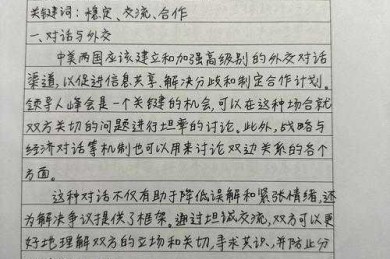 关键词：稳定、交流、合作
一、对话与外交
中美两国应该建立和加强高级别的外交对话
渠道，以促进信息共享、解决分歧和制定合作计划。
领导人峰会是一个关键的机会，可以在这种场合就
双方关切的问题进行坦率的讨论。此外，战略与
经济对话等机制也可以用来讨论双边关系的各个
方面。
这种对话不仅有助于降低误解和紧张情绪，还
为解决争议提供了框架。通过坦诚交流，双方可以更
好地理解双方的立场和关切，寻求共识，并防止分